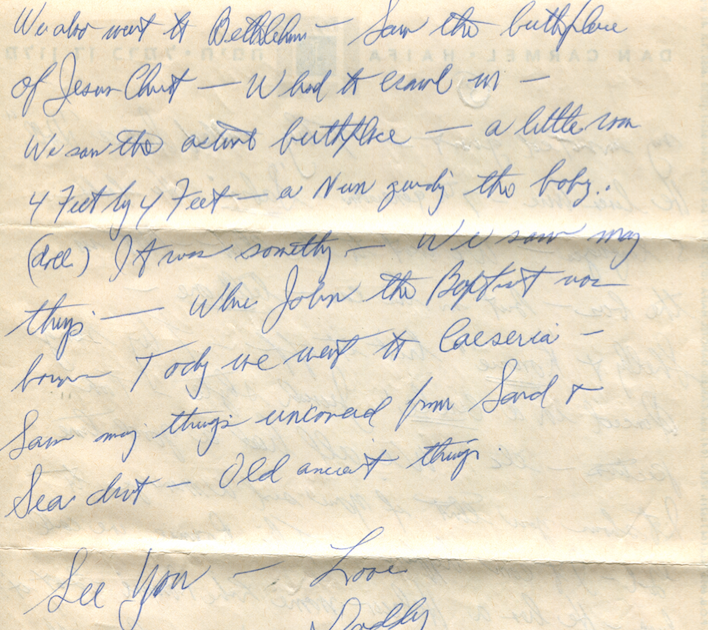 We also went to Bethlehem — Saw the birthplace
of Jesus Christ — W had to crawl in —
We saw the actual birthplace — a little room
4 Feet by 4 Feet — a Nun guardg the baby..
(doll) It was somethg — We saw many
things — Where John the Baptist was
born Today we went to Caeseria —
Saw many things uncovered from Sand &
Sea dust — Old ancient things.
See You — Love
Daddy
DAN CARMEL HAIFA